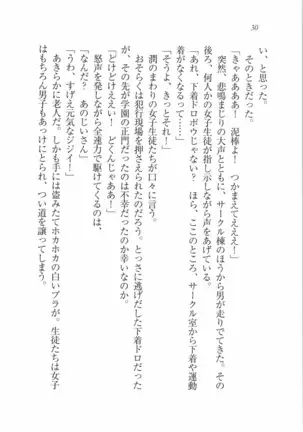 30
い、と思った。
そのときだった。
「きゃああああ！　泥棒よ！　つかまえてえええ！」
突然、悲鳴まじりの大声とともに、サークル棟のほうから男が走りでてきた。その
後ろ、何人かの女子生徒が指し示しながら声をあげている。
「あれ、下着ドロボウじゃない？　ほら、ここのところ、サークル室から下着や運動
着がなくなるって……」
「そうよ、きっとそれ！」
潤のまわりの女子生徒たちが口々に言う。
おそらくは犯行現場を押さえられたのだろう。とっさに逃げだした下着ドロだった
が、その先が学園の正門だったのは不幸だったのか幸いなのか。
「どけどけえええい！　どんじゃああ！」
怒声を発しながら全速力で駆けてくるのは、
「なんだ？　あのじいさん」
「うわ、すげえ元気なジジイ！」
あきらかに老人だ。しかも手には盗みたてホカホカの白いブラが。生徒たちは女子
はもちろん男子もあっけにとられ、つい道を譲ってしまう。